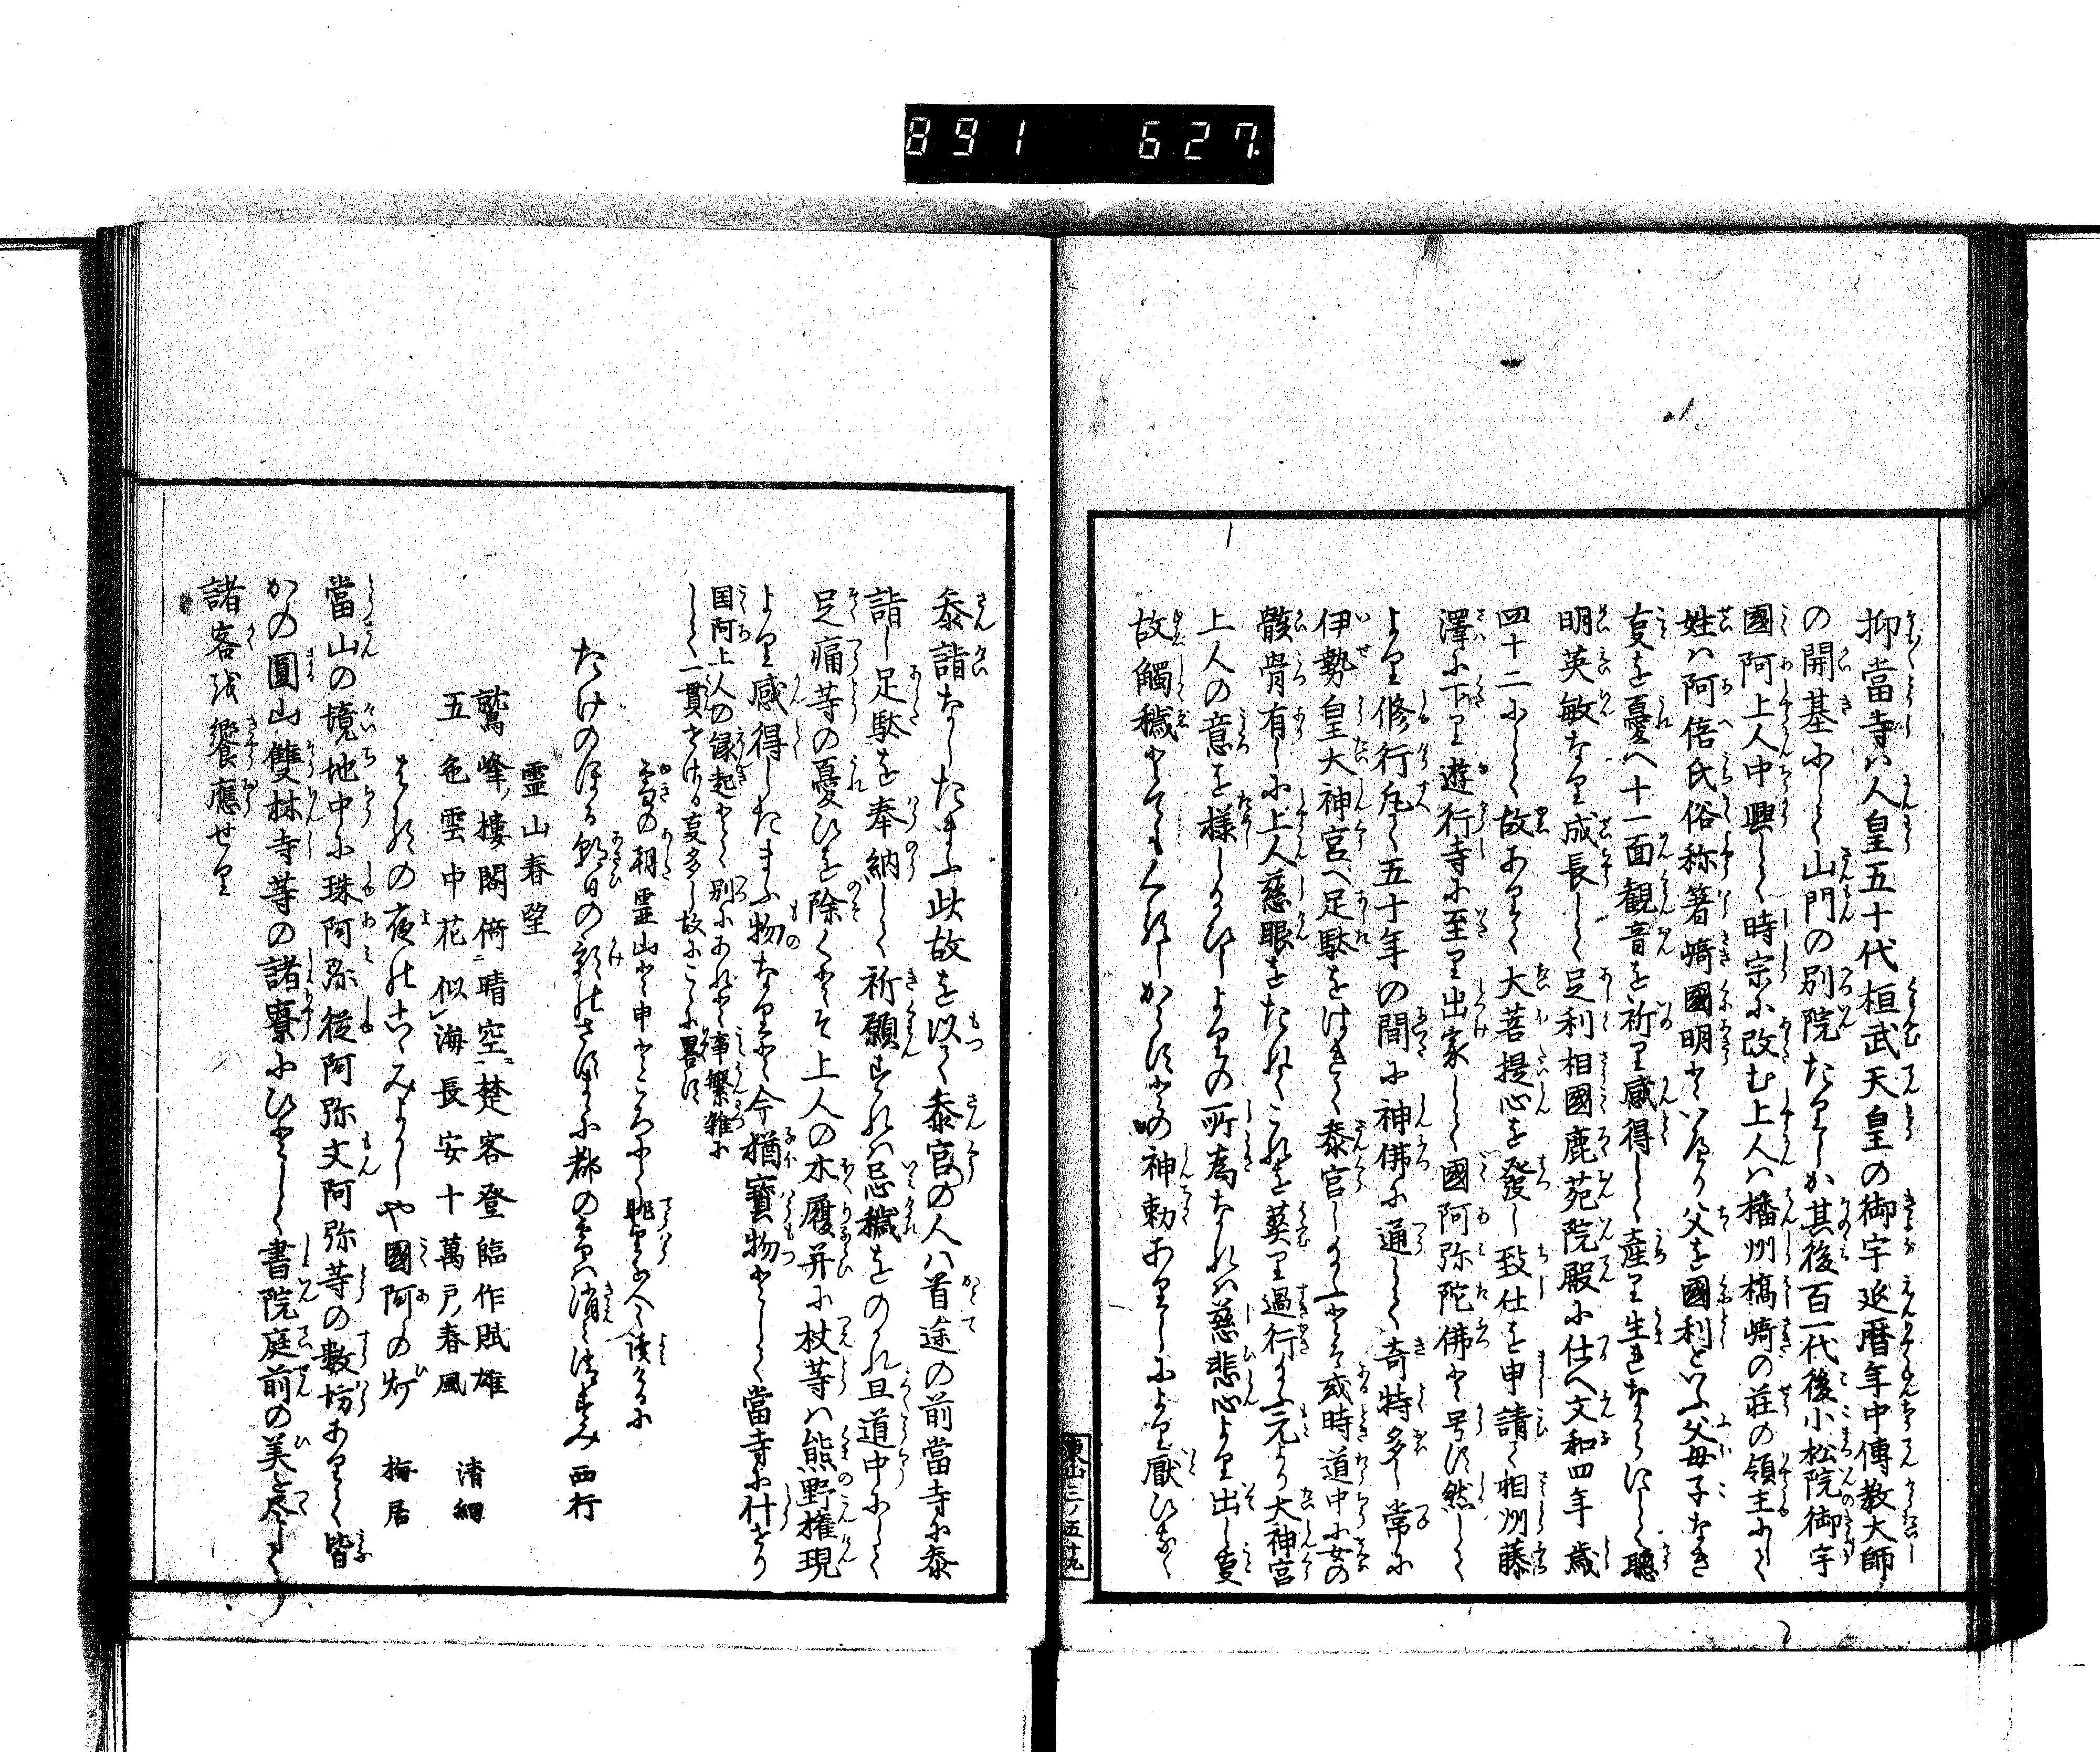 891 627
抑當寺ハ人皇五十代桓武天皇の御宇延暦年中傳教大師
の開基にして山門の別院たりしが其後百一代後小松院御宇
國阿上人中興して時宗に改む上人ハ播州橋﨑の荘の領主にして
姓ハ阿倍氏俗称箸﨑國明といへり父を國利といふ父母子なき
叓を憂へ十一面観音を祈り感得して産り生れながらにして聰
明英敏なり成長して足利相國鹿苑院殿に仕へ文和四年歳
四十二にして故ありて大菩提心を發し致仕を申請て相州藤
澤に下り遊行寺に至り出家して國阿弥陀佛と号す然して
より修行凡て五十年の間に神佛に通じて奇特多し常に
伊勢皇大神宮へ足駄をはきて参宮し給ふとぞ或時道中に女の
骸骨有しに上人慈眼をたれてこれを葬り過行給ふ元より大神宮
上人の意を様し給ひしよりの所為なれハ慈悲心より出し叓
故觸穢とても人の
神勅ありしにより厭ひなく
東山三ノ五十九
参詣なしたまふ此故を以て参宮の人ハ首途の前當寺に参
詣し足駄を奉納して祈願すれハ忌穢をのれ且道中にして
足痛等の憂ひを除くとぞ上人の木履并に杖等ハ熊野権現
より感得したまふ物なりとて今猶寳物として當寺に什せり
国阿上人の縁起とて別にあれど事繁雑に
して一貫せざる叓多し故にこゝに畧す
雪の朝霊山と申ところにて眺望を人々讀けるに
たけのぼる朝日の影のさすまゝに都の雪ハ消みきえずみ 西行
霊山春望
鷲峰ノ樓閣倚ニ晴空ニ楚客登臨作賦雄
五色雲中花似レ海長安十萬戸ノ春風 清絢
はるの夜のたのみよりしや國阿の灯 梅居
當山の境地中に珠阿弥従阿弥文阿弥等の数坊ありて皆
かの圓山雙林寺等の諸寮にひとしく書院庭前の美を尽して
諸客を饗應せり